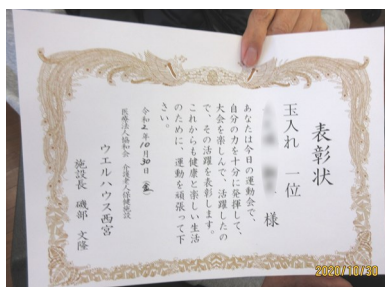 表彰状
玉入れ 一位
様
あなたは今日の運動会で、
自分の力を十分に発揮して、
大会を楽しんで、活躍したの
で、その活躍を表彰します。
これからも健康と楽しい生活
のために、運動を頑張って下
さい。
令和2年10月30日(金)
医療法人協和会 介護老人保健施設
ウエルハウス西宮
施設長 磯部 文隆
2020/10/30